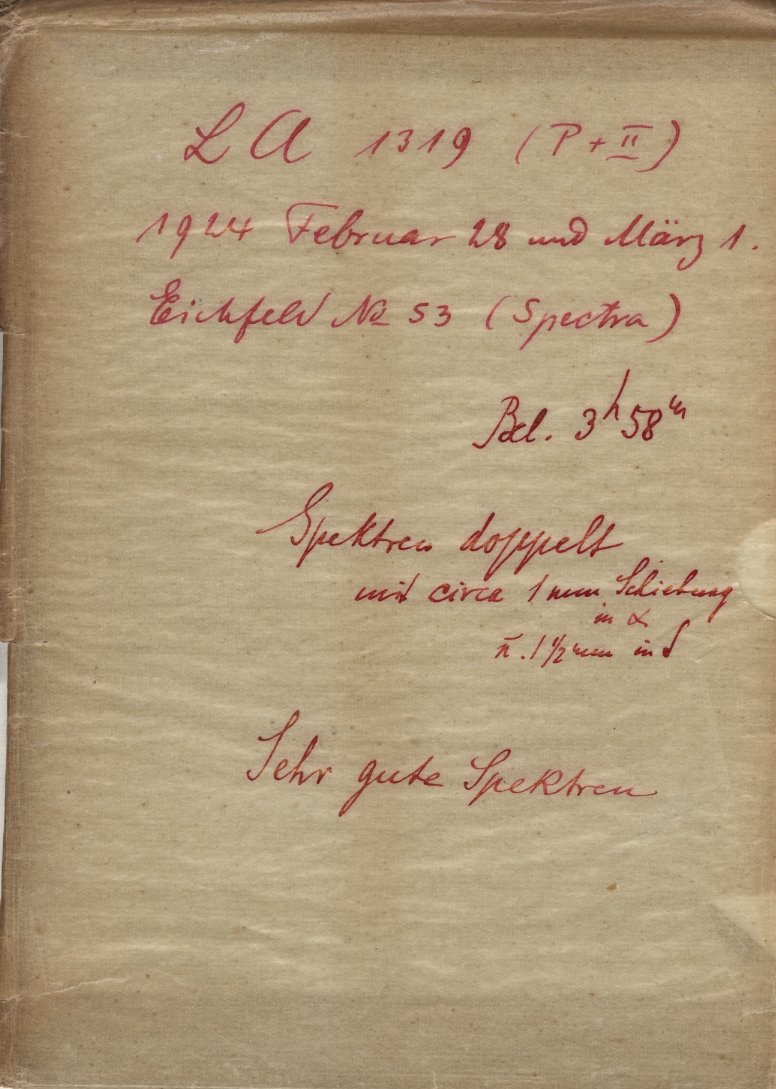 LA 1319 (P + II)
1924 Februar 28 und März 1.
Eichfeld No 53 (Spectra)
Bel. 3h 58m
Spektren doppelt
mit circa 1 mm Schiebung
in α
u. 1 1/2 mm in δ
Sehr gute Spektren